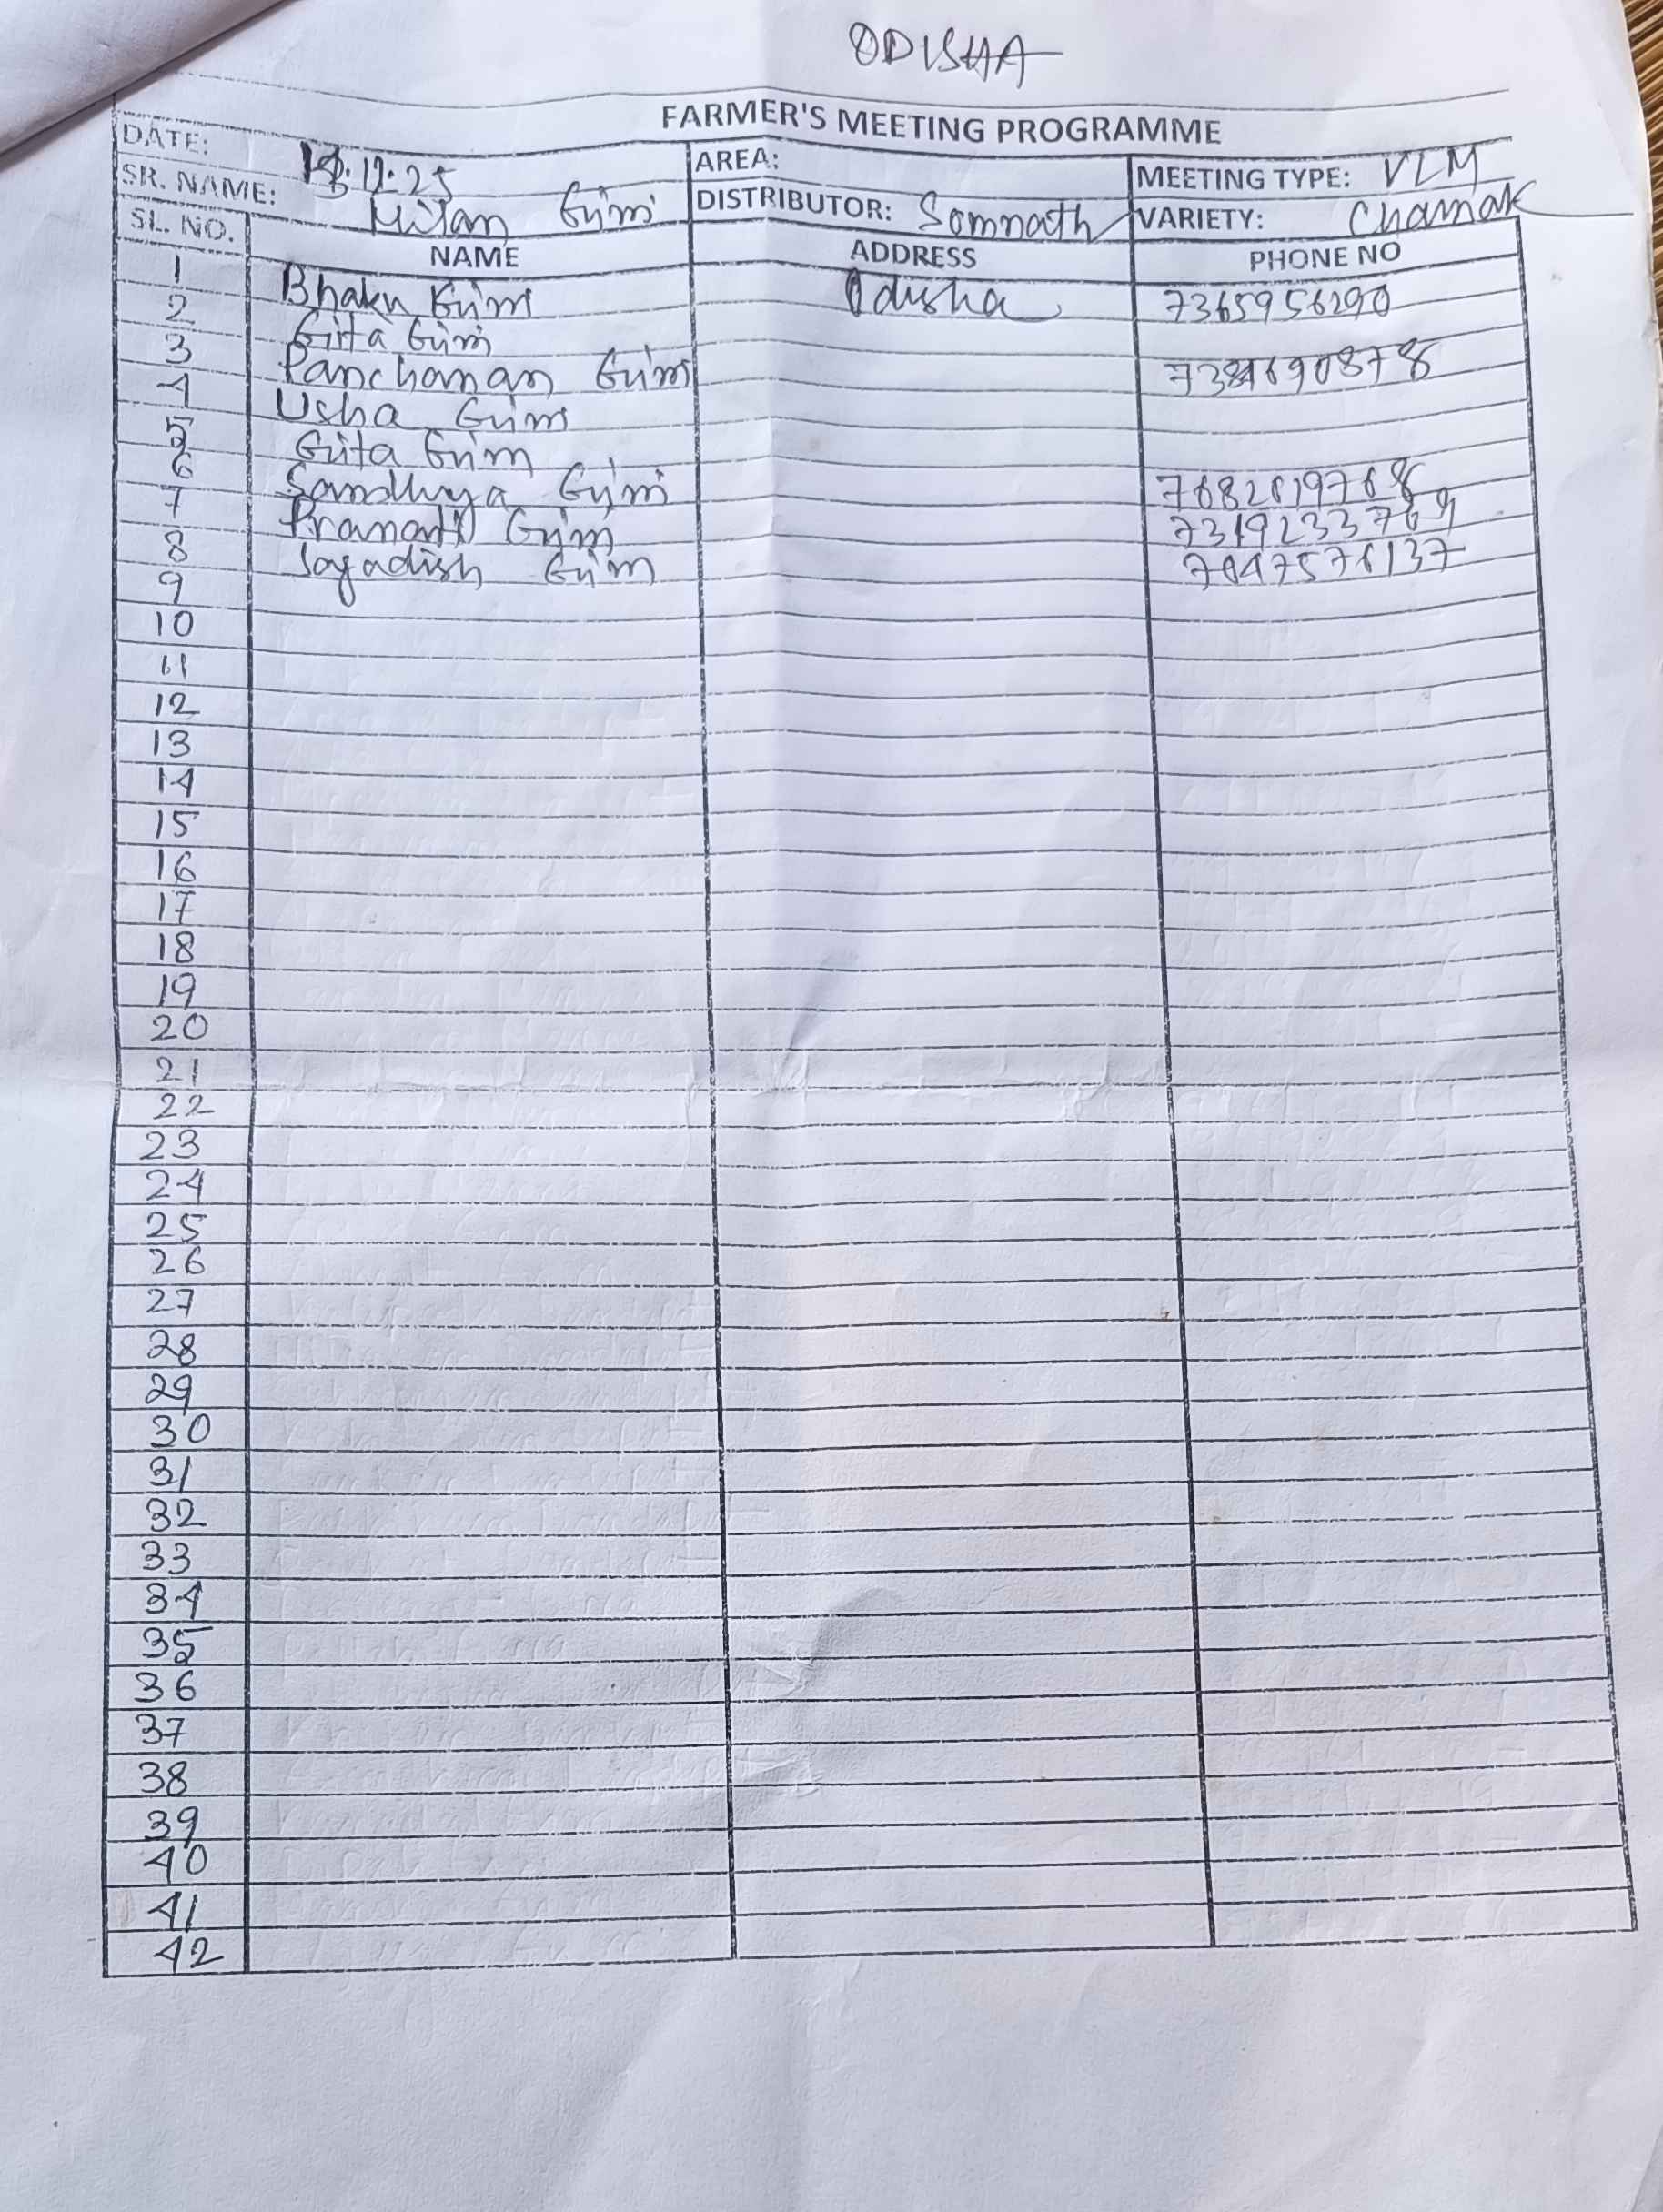 ODISHA
FARMER'S MEETING PROGRAMME
DATE: 12.25 AREA: MEETING TYPE: VLM
SR. NAME: Milan Giri DISTRIBUTOR: Somnath VARIETY: Chamak
SL. NO. NAME ADDRESS PHONE NO
1 Bhaku Giri Odisha 7365956290
2 Gita Giri
3 Panchanan Giri
4 Usha Giri
5 Gita Giri
6 Sandhya Giri 7682819768
7 Pranati Giri 7319233769
8 Jagadish Giri 7047576137
9
10
11
12
13
14
15
16
17
18
19
20
21
22
23
24
25
26
27
28
29
30
31
32
33
34
35
36
37
38
39
40
41
42